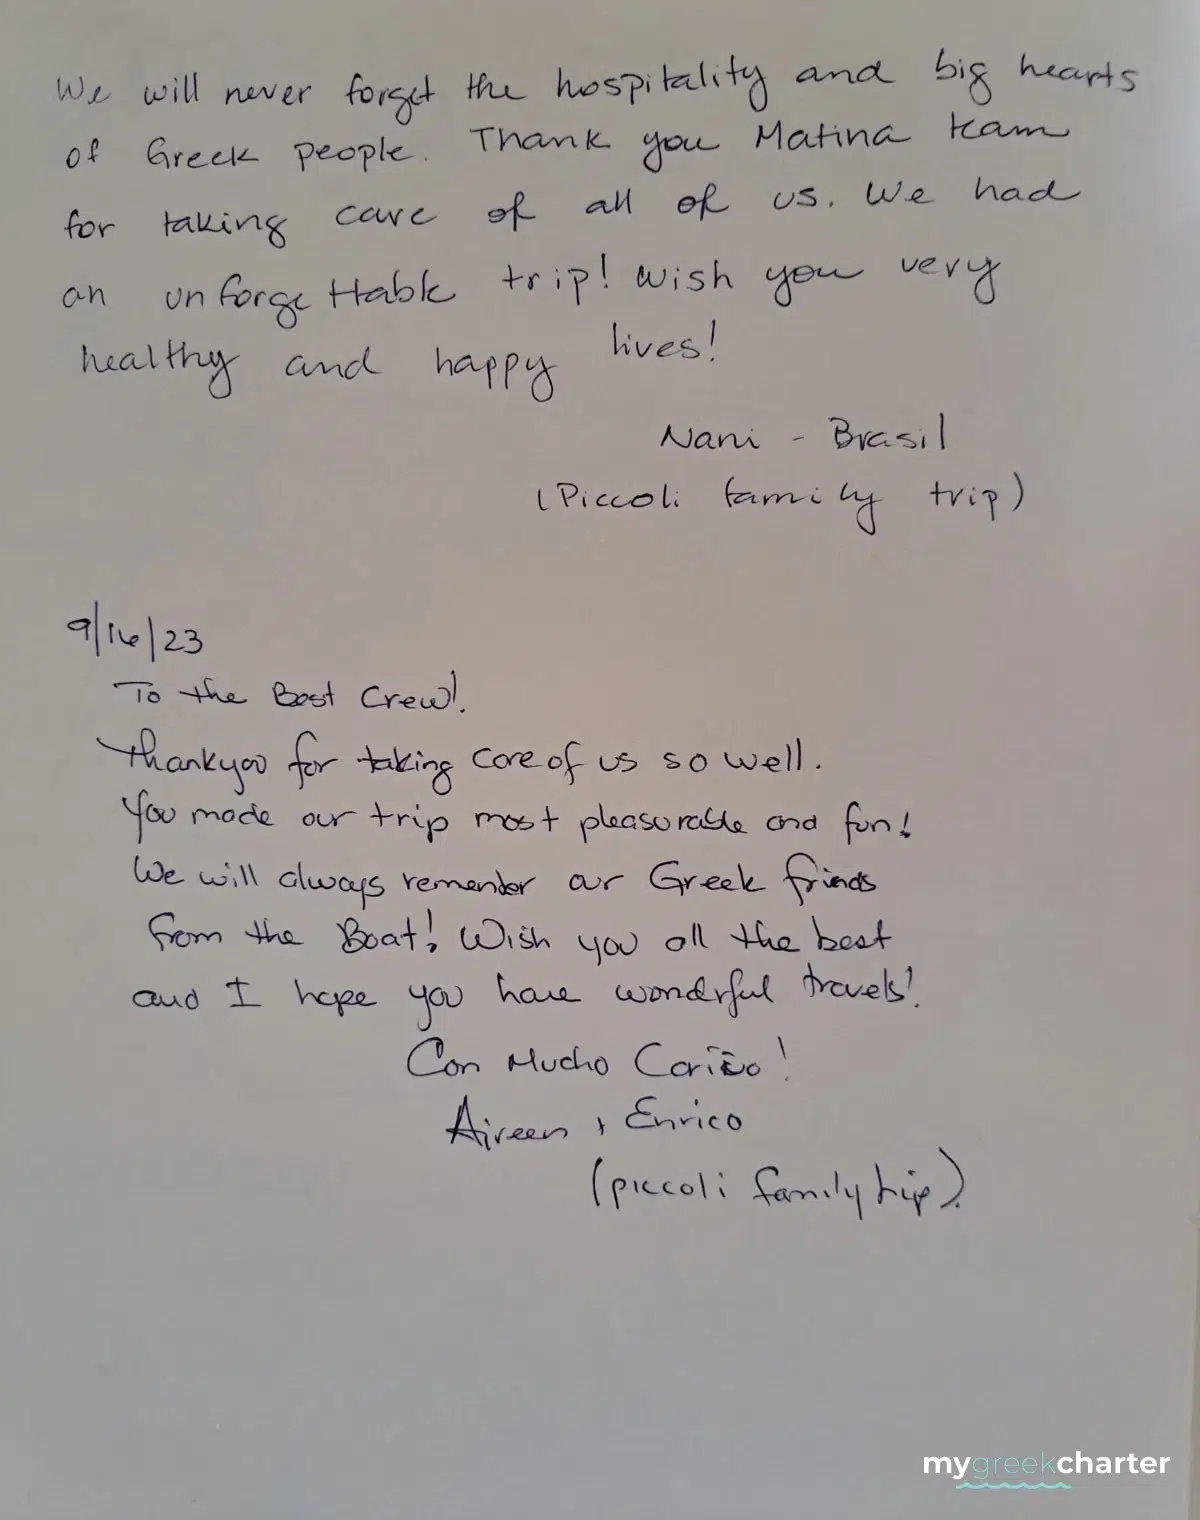 We will never forget the hospitality and big hearts
of Greek people. Thank you Matina team
for taking care of all of us. We had
an unforgettable trip! Wish you very
healthy and happy lives!
Nani - Brasil
(Piccoli family trip)
9/16/23
To the Best Crew!
Thankyou for taking care of us so well.
You made our trip most pleasurable and fun!
We will always remember our Greek friends
from the Boat! Wish you all the best
and I hope you have wonderful travels!
Con Mucho Cariño!
Aireen + Enrico
(piccoli family trip).
mygreekcharter